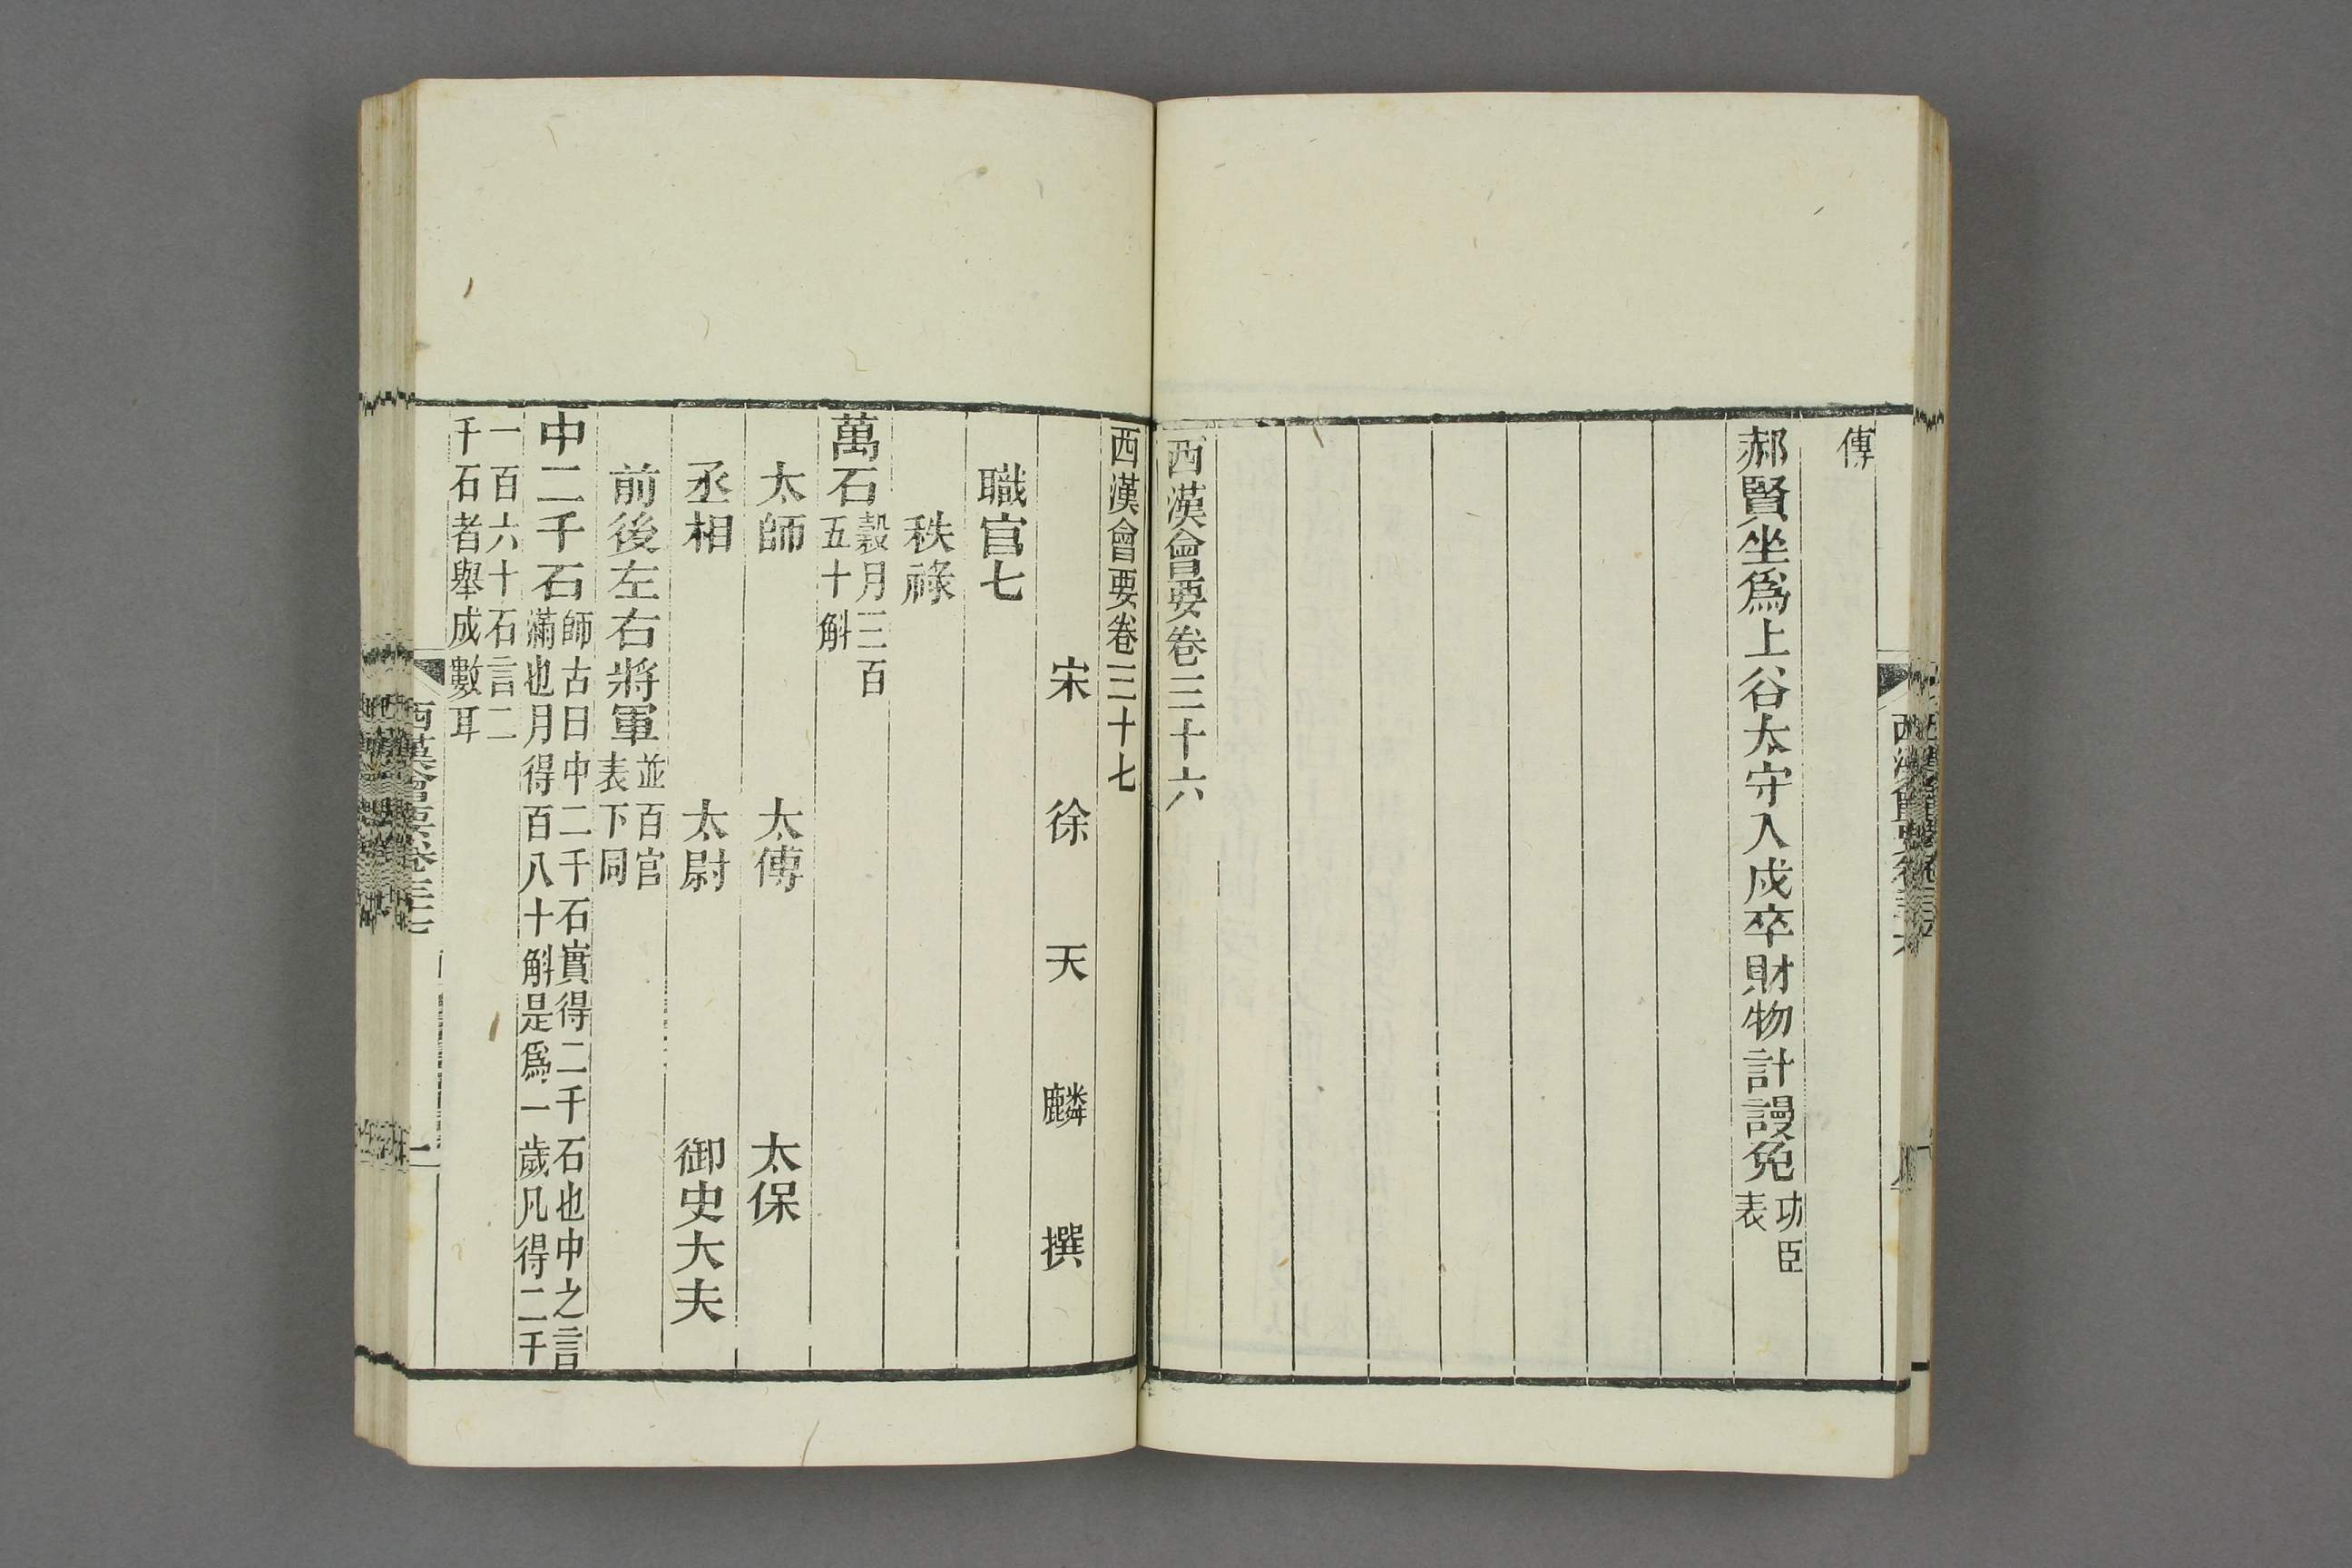 傳
郝賢坐爲上谷太守入戍卒財物計謾免功臣表
西漢會要卷三十六
西漢會要卷三十七
宋 徐 天 麟 撰
職官七
秩祿
萬石穀月三百五十斛
太師 太傅 太保
丞相 太尉 御史大夫
前後左右將軍並百官表下同
中二千石師古曰中二千石實得二千石也中之言滿也月得百八十斛是爲一歲凡得二千
一百六十石言二千石者舉成數耳
西漢會要卷三十七
一